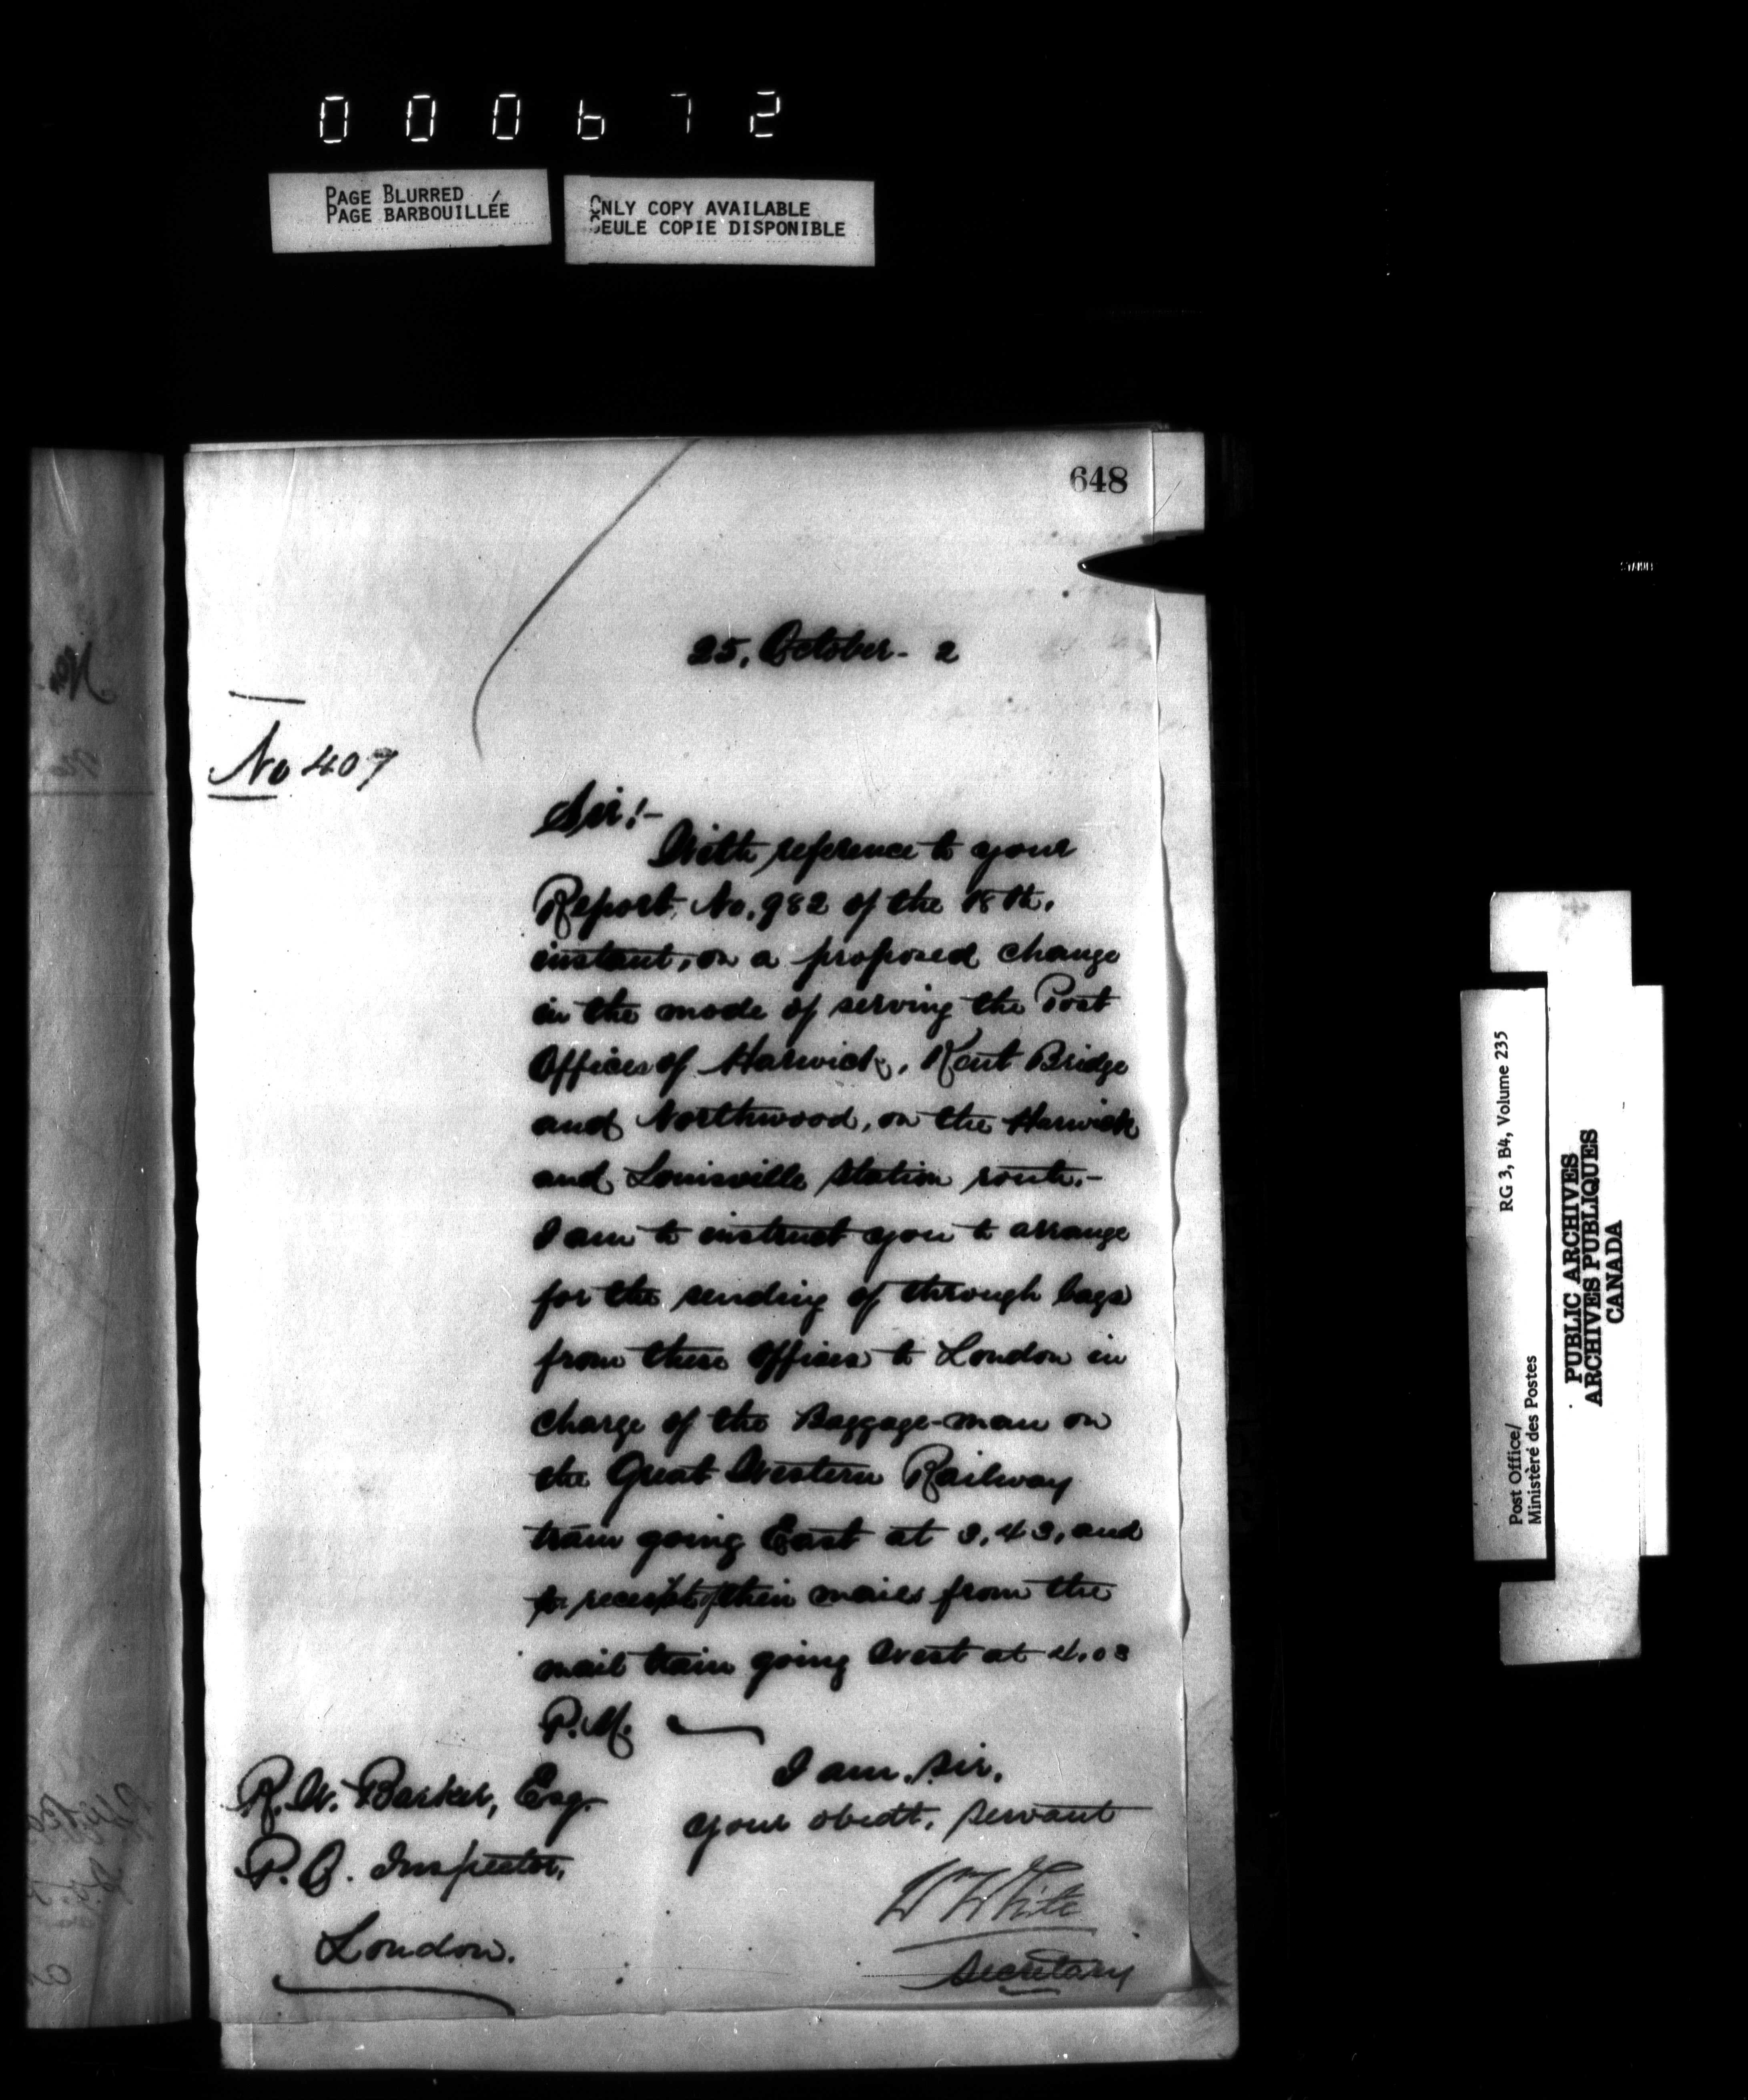 000672
PAGE BLURRED
PAGE BARBOUILLÉE
ONLY COPY AVAILABLE
SEULE COPIE DISPONIBLE
648
25, October - 2
No 407
Sir:-
With reference to your
Report, No. 982 of the 18th.
instant, on a proposed change
in the mode of serving the Post
Offices of Harwich, Kent Bridge
and Northwood, on the Harwich
and Louisville Station route.-
I am to instruct you to arrange
for the sending of through bags
from these Offices to London in
charge of the Baggage-man on
the Great Western Railway
train going East at 3,43, and
to receipt of their mails from the
mail train going West at 4.03
P.M.
I am, Sir,
Your obedt. servant
W White
Secretary
R. W. Barker, Esq.
P.O. Inspector,
London.
Post Office/
Ministère des Postes
RG 3, B4, Volume 235
PUBLIC ARCHIVES
ARCHIVES PUBLIQUES
CANADA